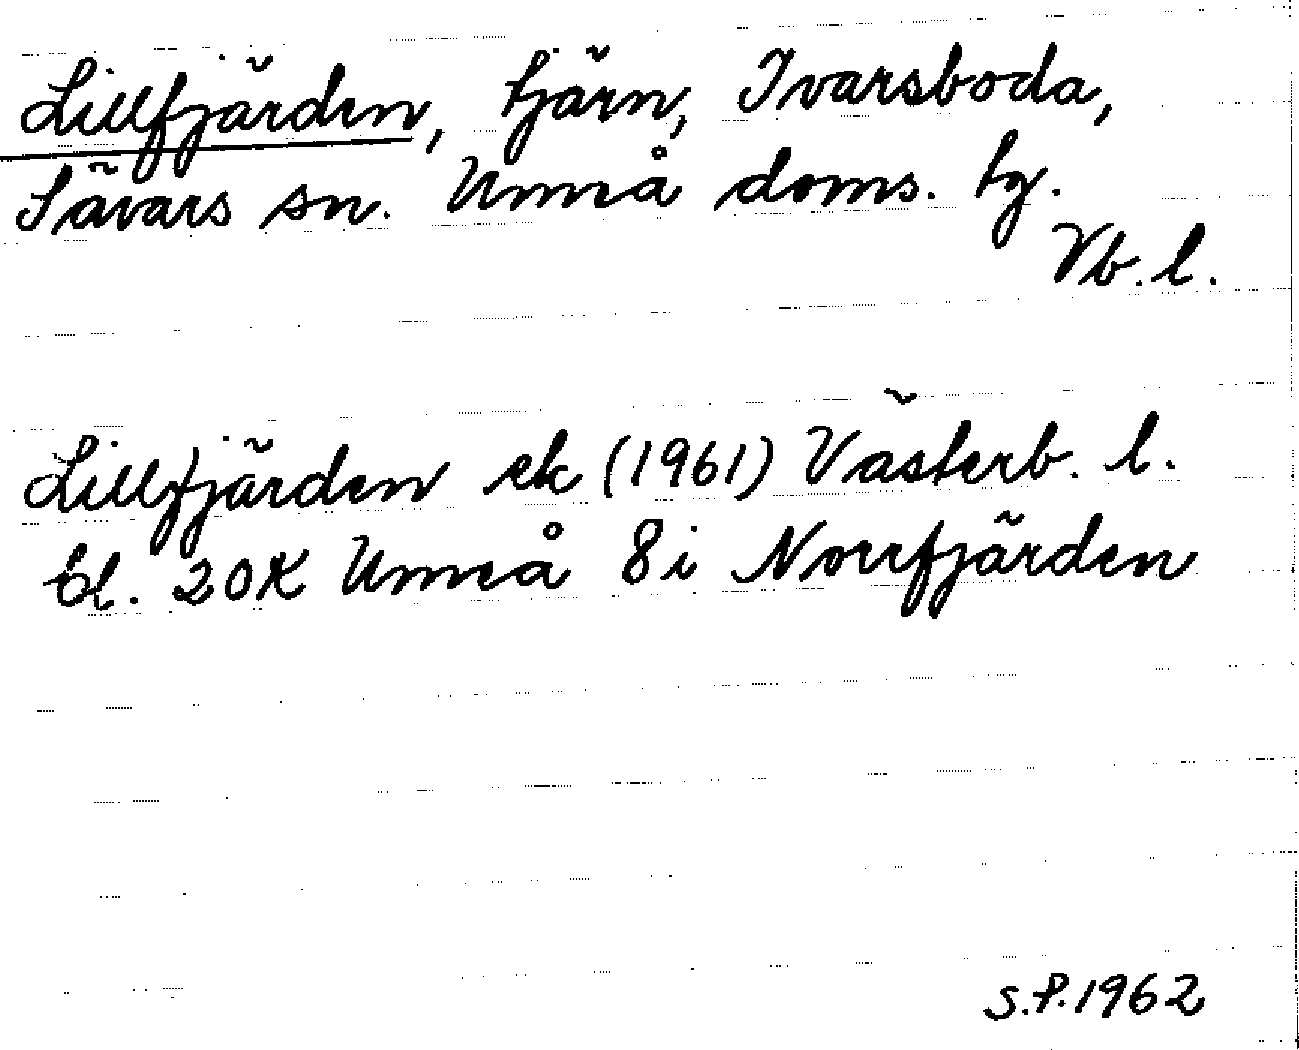 Lillfjärden, tjärn, Ivarsboda,
Sävars sn. Umeå doms. tg.
Vb. l.
Lillfjärden ek (1961) Västerb. l.
bl. 20K Umeå 8i Norrfjärden
S.P. 1962